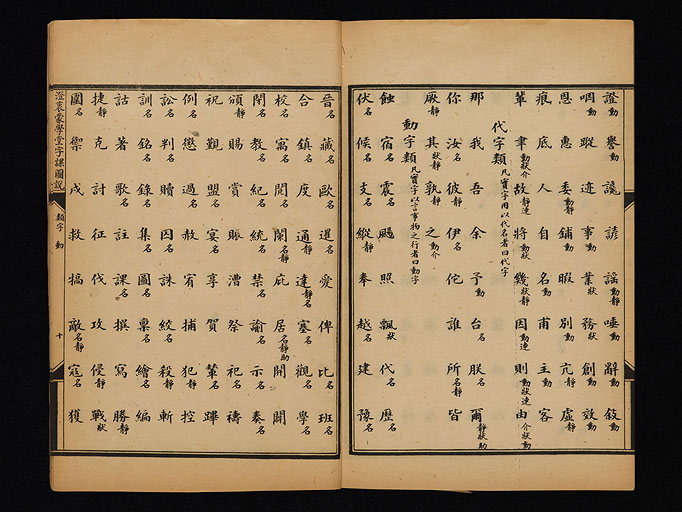 證動 譽動 讒 諺 謠動靜 唾動 辭動 敘動
唄動 蹤 迹 事動 業狀 務狀 創動 效動
恩 惠 委動靜 鋪動 暇 別動 亢靜 虛靜
痕 底 人 自 名動 甫 主動 客
輩 聿動狀介 故靜連 將動狀 幾狀靜 因動連 則動狀連 由介狀動
代字類凡實字用以代名者曰代字
那 我 吾 余 予動 台名 朕名 爾靜狀助
你 汝名 彼靜 伊名 佗 誰 所名靜 皆
厥靜 其狀靜 孰靜 之動介
動字類凡實字以言事物之行者曰動字
蝕 宿名 震名 颺 照 飄狀 代名 歷名
伏名 候名 支名 縱靜 奉 越名 建 豫名
晉名 藏名 歐名 選名 愛 俾 比名 班名
合 鎮名 度 通靜 達靜名 塞名 觀名 學名
校名 寓名 閱名 闡名靜 庇 居名靜助 開 闢
閉名 教名 紀名 統名 禁名 諭名 示名 奏名
頒靜 賜 賞 賑 漕 祭 祀名 禱
祝 覲 盟名 宴名 享 賀 輦名 蹕
例名 懲 過名 赦 宥 捕 犯靜 控
訟名 判名 贖 囚名 誅 絞名 殺靜 斬
訓名 銘名 錄名 集名 圖名 稟名 繪名 編
詁 著 歌名 註 課名 撰 寫 勝靜
捷靜 克 討 征 伐 攻 侵靜 戰狀
圍名 禦 戍 救 犒 敵名靜 寇名 獲
澄衷蒙學堂字課圖說
類字 動
十